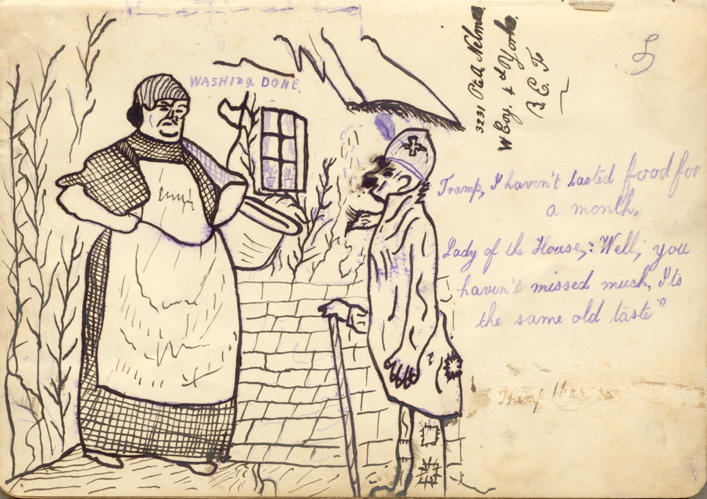 WASHING. DONE.
3231 Pte A. Nelmes
W Coy. 4th Yorks.
B. E. F.
Tramp, I haven't tasted food for
a month,
Lady of the House,: Well, you
haven't missed much, Its
the same old taste"